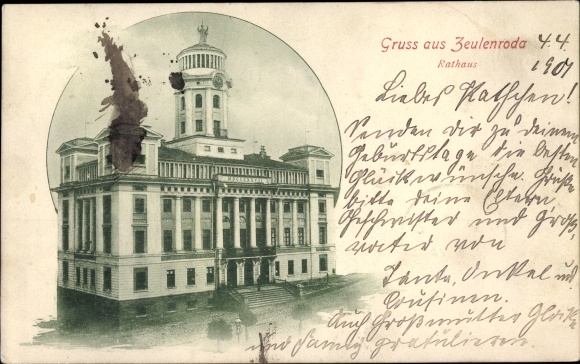 Gruss aus Zeulenroda
Rathaus
4.4.
1901
Liebes Kätschen!
Senden dir zu deinem
Geburtstage die besten
Glückwünsche. Grüße
bitte deine Eltern,
Geschwister und Groß-
vater von
Tante, Onkel und
Cousinen.
Auch Großmutter
und gratulieren.